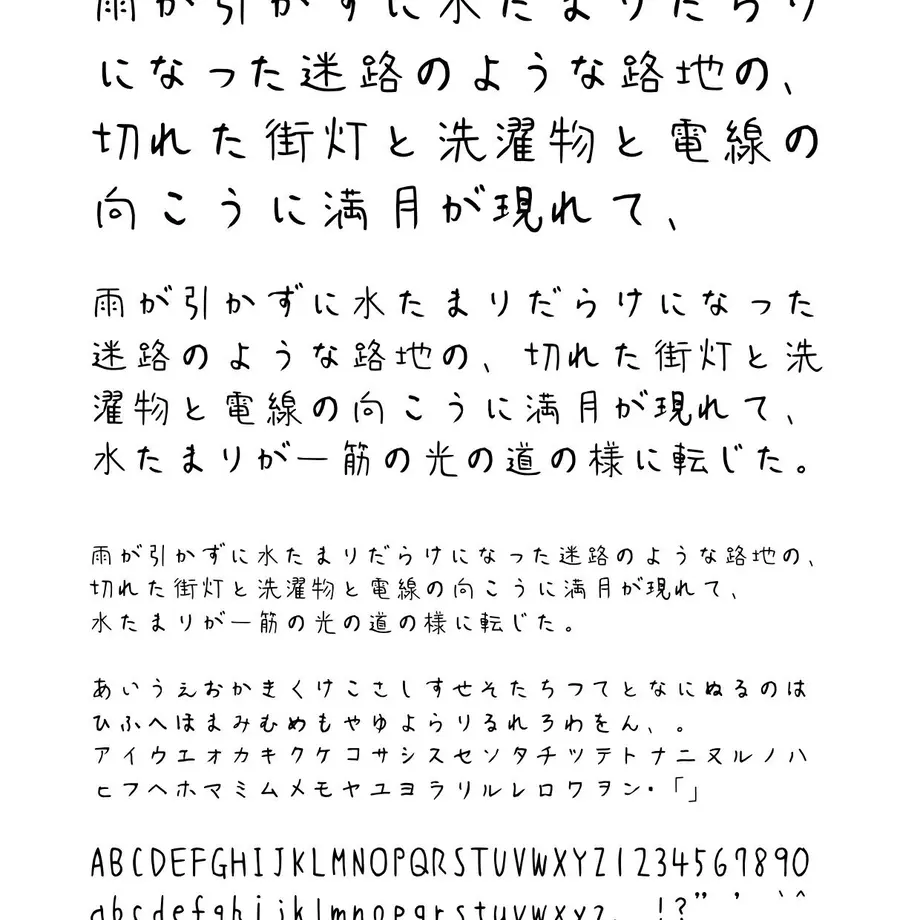 雨が引かずに水たまりだらけ
になった迷路のような路地の、
切れた街灯と洗濯物と電線の
向こうに満月が現れて、
雨が引かずに水たまりだらけになった
迷路のような路地の、切れた街灯と洗
濯物と電線の向こうに満月が現れて、
水たまりが一筋の光の道の様に転じた。
雨が引かずに水たまりだらけになった迷路のような路地の、
切れた街灯と洗濯物と電線の向こうに満月が現れて、
水たまりが一筋の光の道の様に転じた。
あいうえおかきくけこさしすせそたちつてとなにぬるのは
ひふへほまみむめもやゆよらりるれろわをん、。
アイウエオカキクケコサシスセソタチツテトナニヌルノハ
ヒフヘホマミムメモヤユヨラリルレロワヲン・「」
ABCDEFGHIJKLMNOPQRSTUVWXYZ1234567890
abcdefghijklmnopqrstuvwxyz. !?”’｀＾